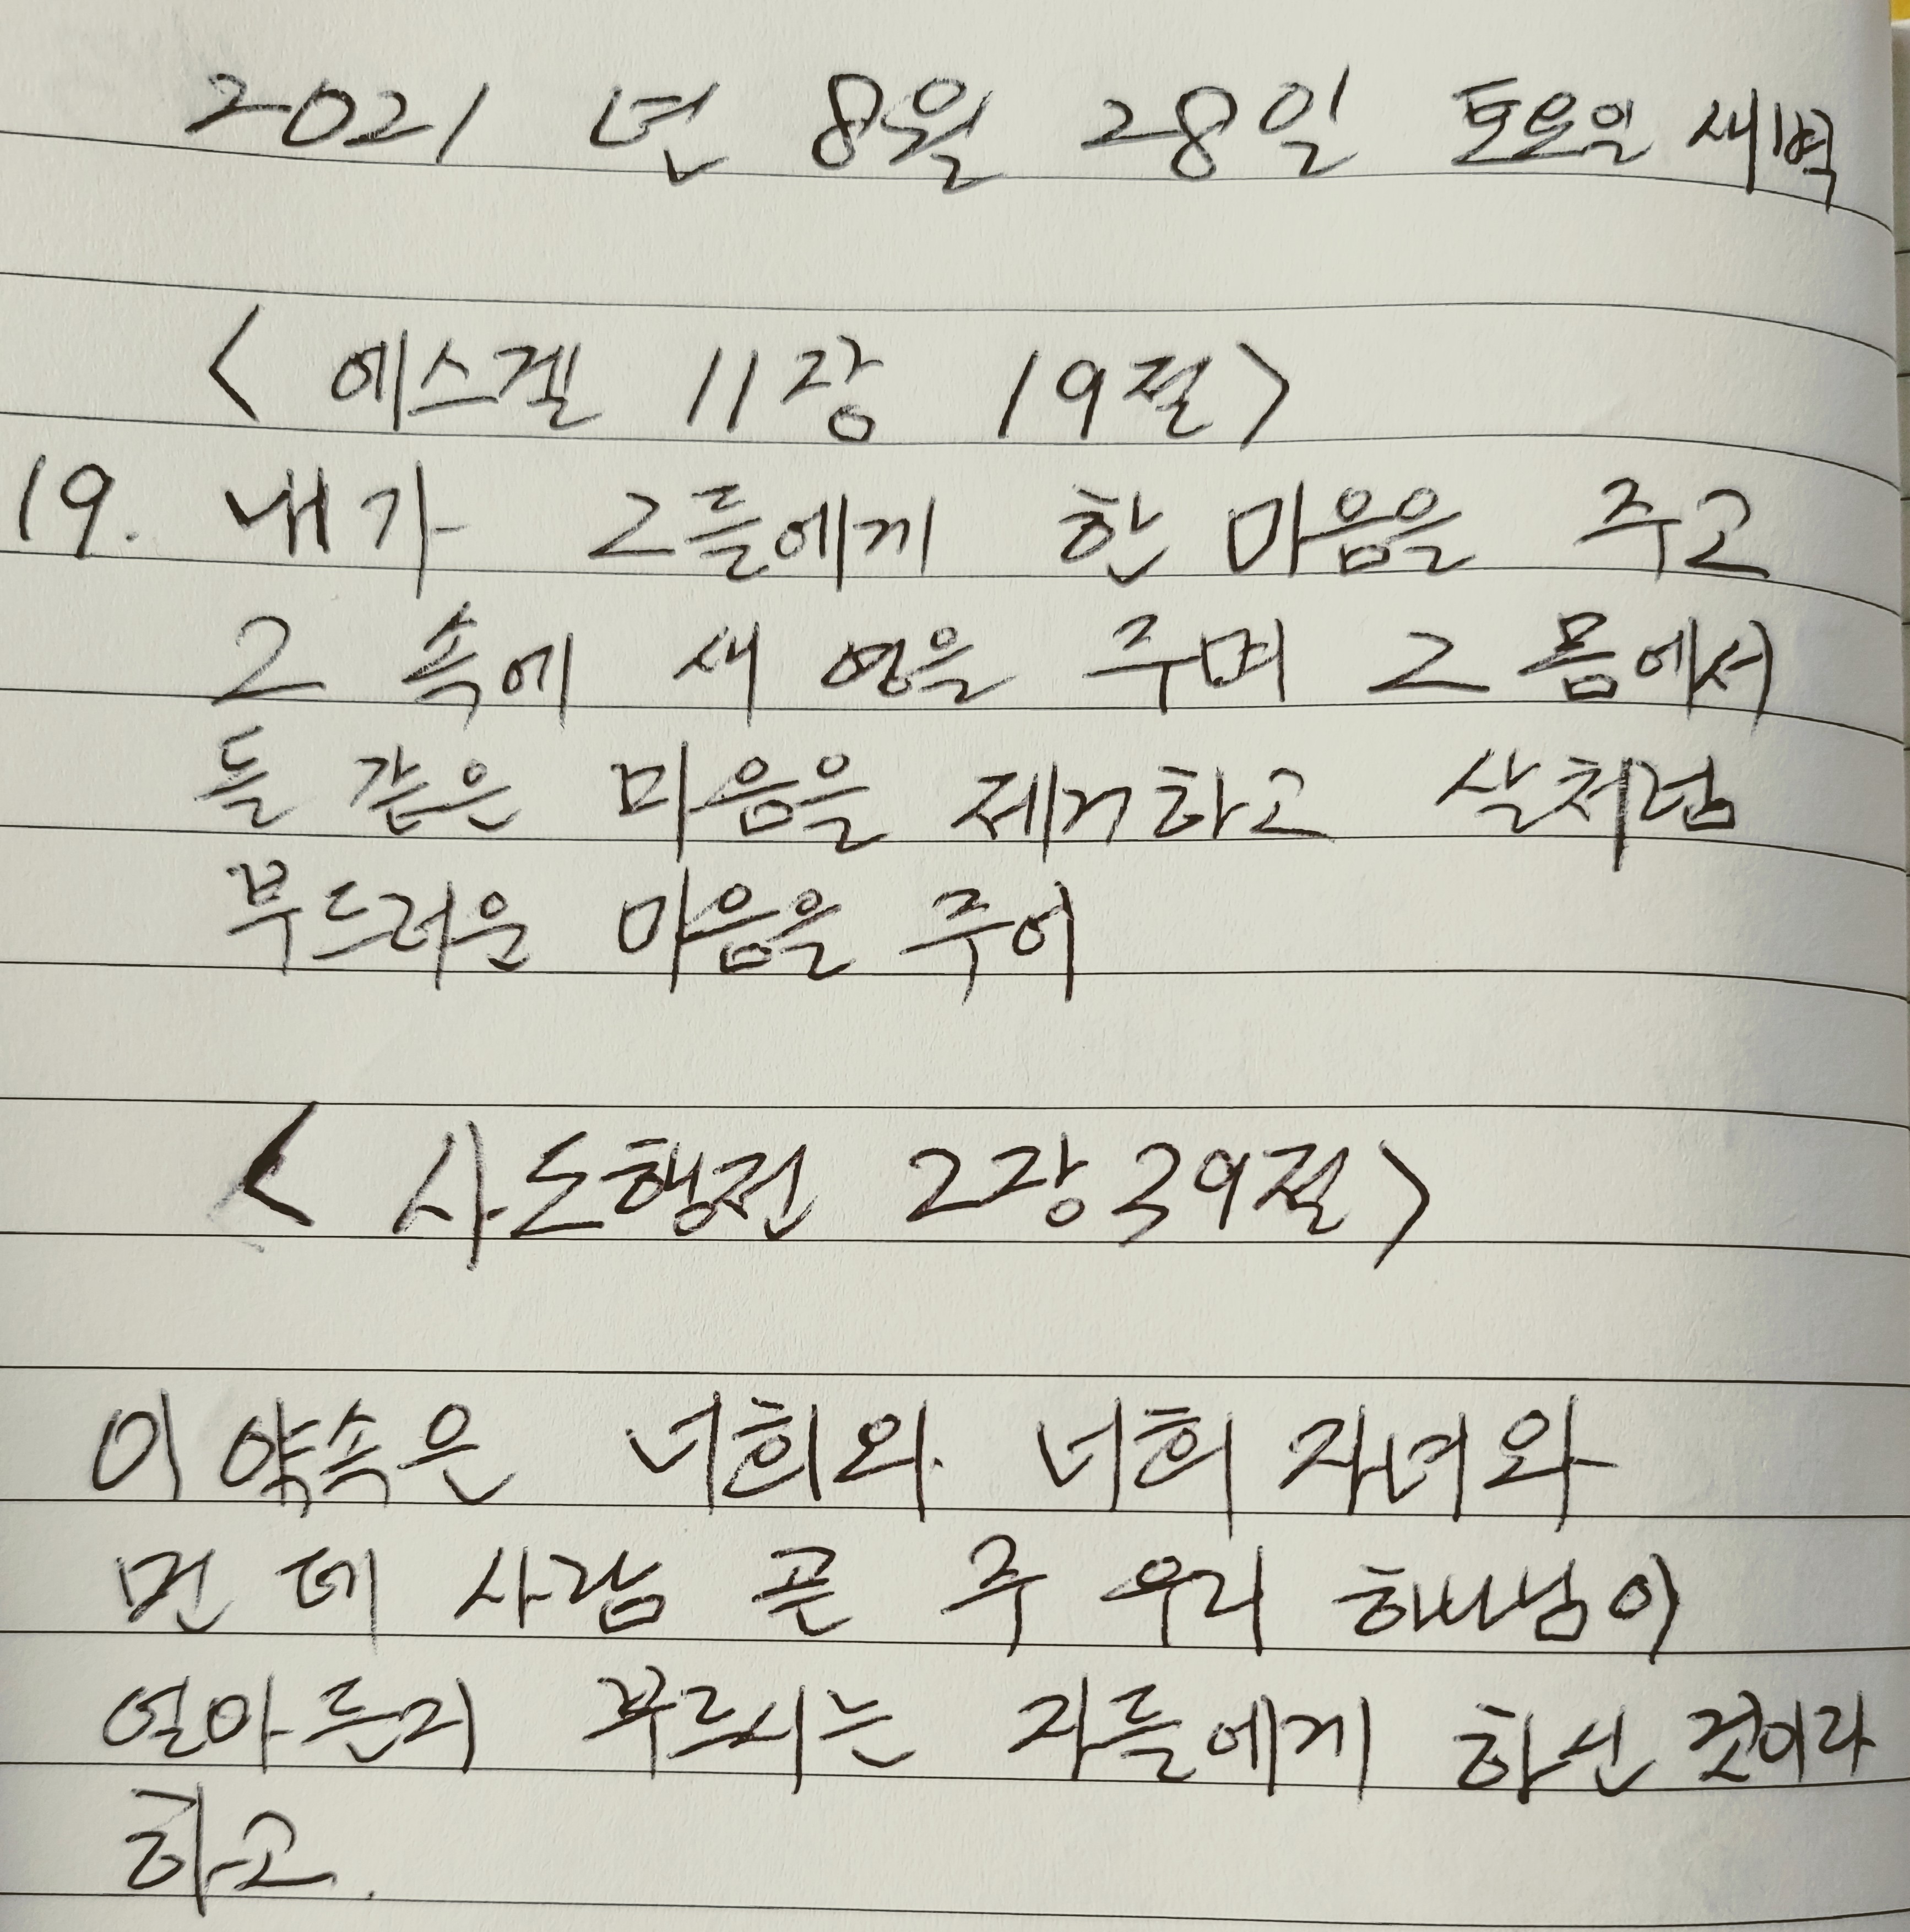 2021 년 8월 28일 토요일 새벽
< 에스겔 11장 19절 >
19. 내가 그들에게 한 마음을 주고
그 속에 새 영을 주며 그 몸에서
돌 같은 마음을 제거하고 살처럼
부드러운 마음을 주어
< 사도행전 2장 39절 >
이 약속은 너희와 너희 자녀와
먼 데 사람 곧 주 우리 하나님이
얼마든지 부르시는 자들에게 하신 것이라
하고.